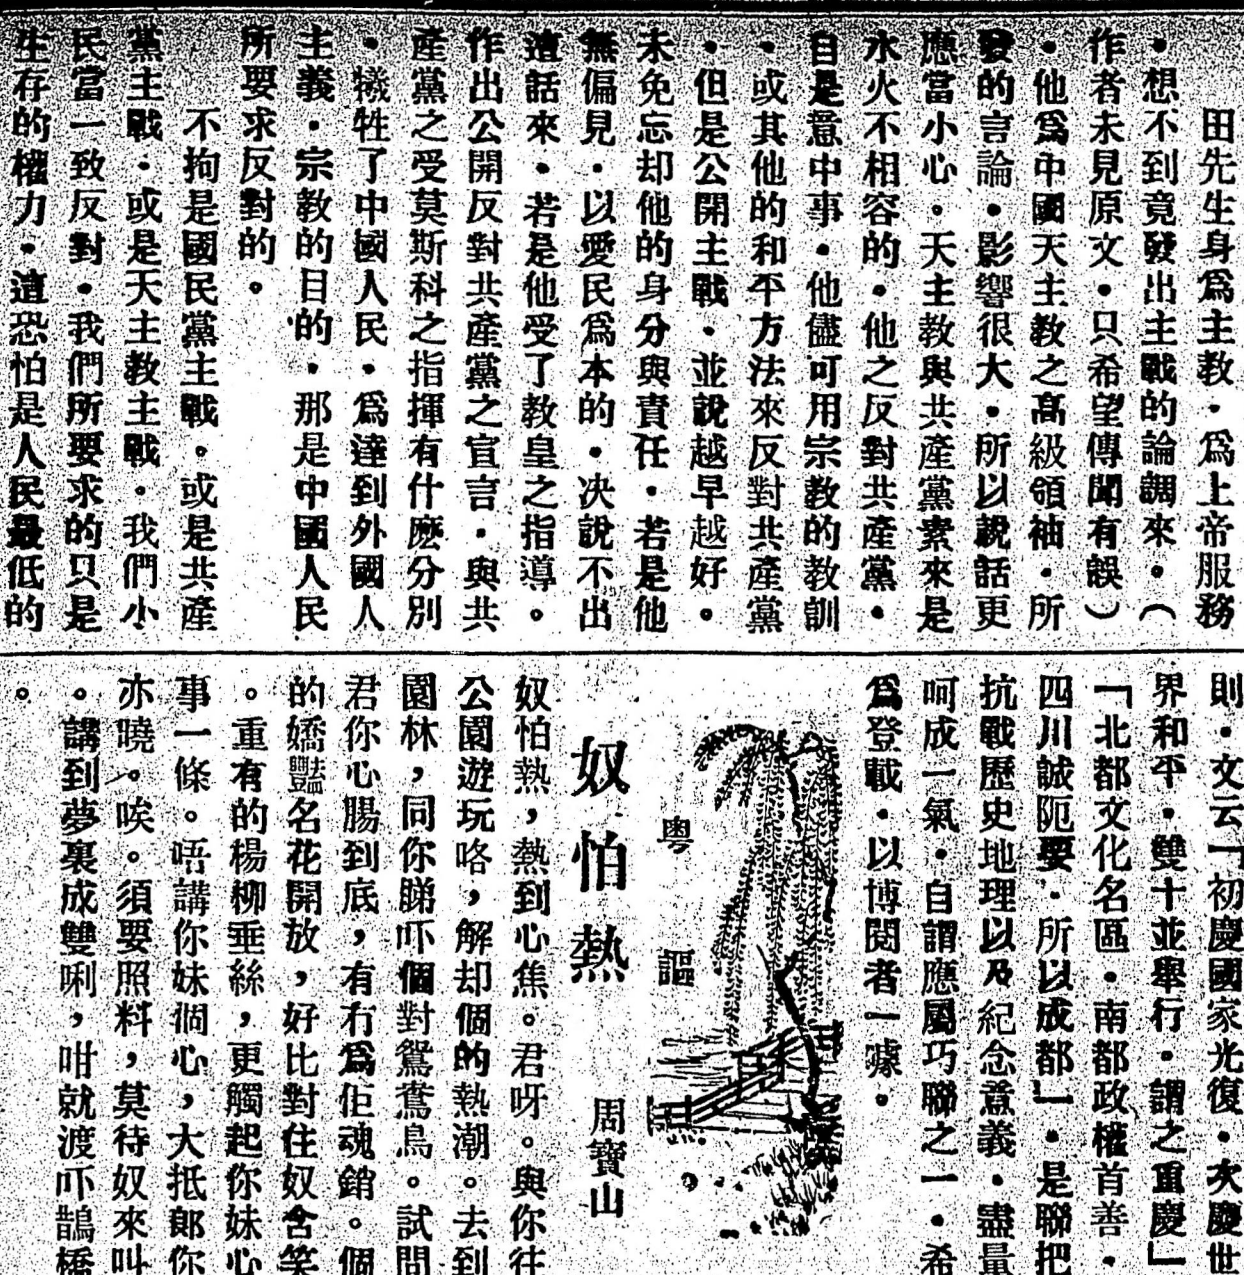 田先生身爲主教・爲上帝服務
・想不到竟發出主戰的論調來・（
作者未見原文・只希望傳聞有誤）
・他爲中國天主教之高級領袖・所
發的言論・影響很大・所以說話更
應當小心。天主教與共產黨素來是
水火不相容的・他之反對共產黨・
自是意中事・他儘可用宗教的教訓
・或其他的和平方法來反對共產黨
・但是公開主戰・並說越早越好。
未免忘却他的身分與責任・若是他
無偏見・以愛民爲本的・决說不出
這話來・若是他受了教皇之指導。
作出公開反對共產黨之宣言・與共
產黨之受莫斯科之指揮有什麽分別
・犧牲了中國人民・爲達到外國人
主義・宗教的目的・那是中國人民
所要求反對的。
不拘是國民黨主戰。或是共產
黨主戰・或是天主教主戰。我們小
民當一致反對・我們所要求的只是
生存的權力・這恐怕是人民最低的
則・文云「初慶國家光復・次慶世
界和平・雙十並舉行・謂之重慶」
「北都文化名區・南都政權首善・
四川誠阨要・所以成都」・是聯把
抗戰歷史地理以及紀念意義・盡量
呵成一氣・自謂應屬巧聯之一・希
爲登載・以博閱者一噱。
粤謳
奴怕熱
周寶山
奴怕熱，熱到心焦。君呀。與你往
公園遊玩咯，解却個的熱潮。去到
園林，同你睇吓個對鴛鴦鳥。試問
君你心腸到底，有冇爲佢魂銷。個
的嬌豔名花開放，好比對住奴含笑
。重有的楊柳垂絲，更觸起你妹心
事一條。唔講你妹個心，大抵郞你
亦曉。唉。須要照料，莫待奴來叫
。講到夢裏成雙唎，咁就渡吓鵲橋
。